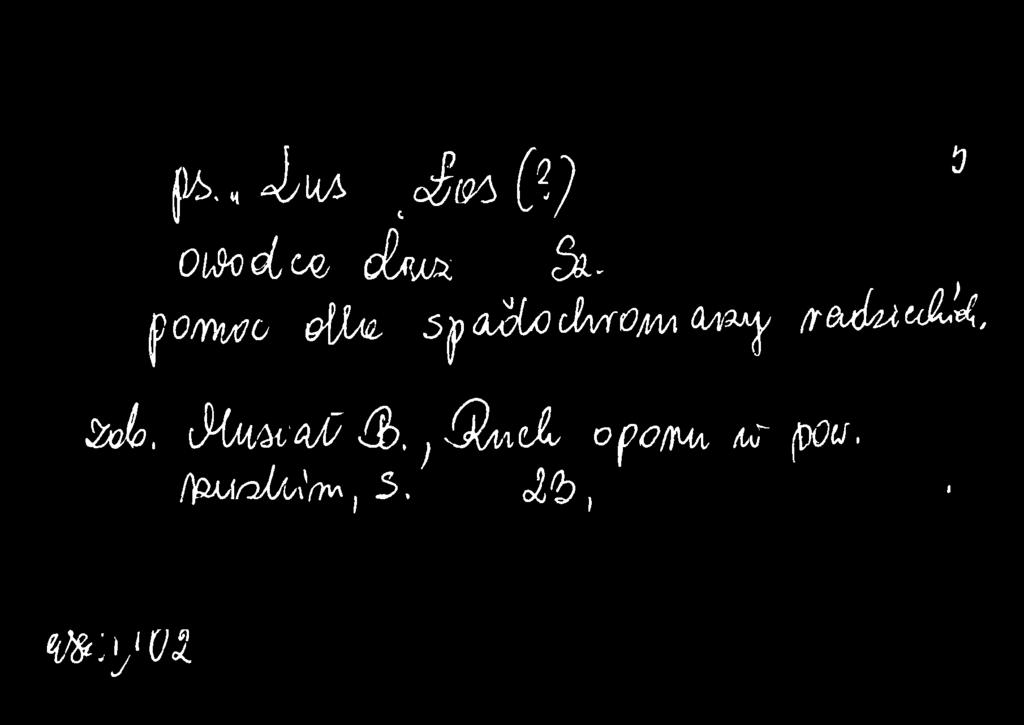 ps. „Lus Łos (?)
owodca druż Sz.
pomoc dla spadochroniarzy radzieckich.
zob. Musiał B., Ruch oporu w pow.
s. 23,
102